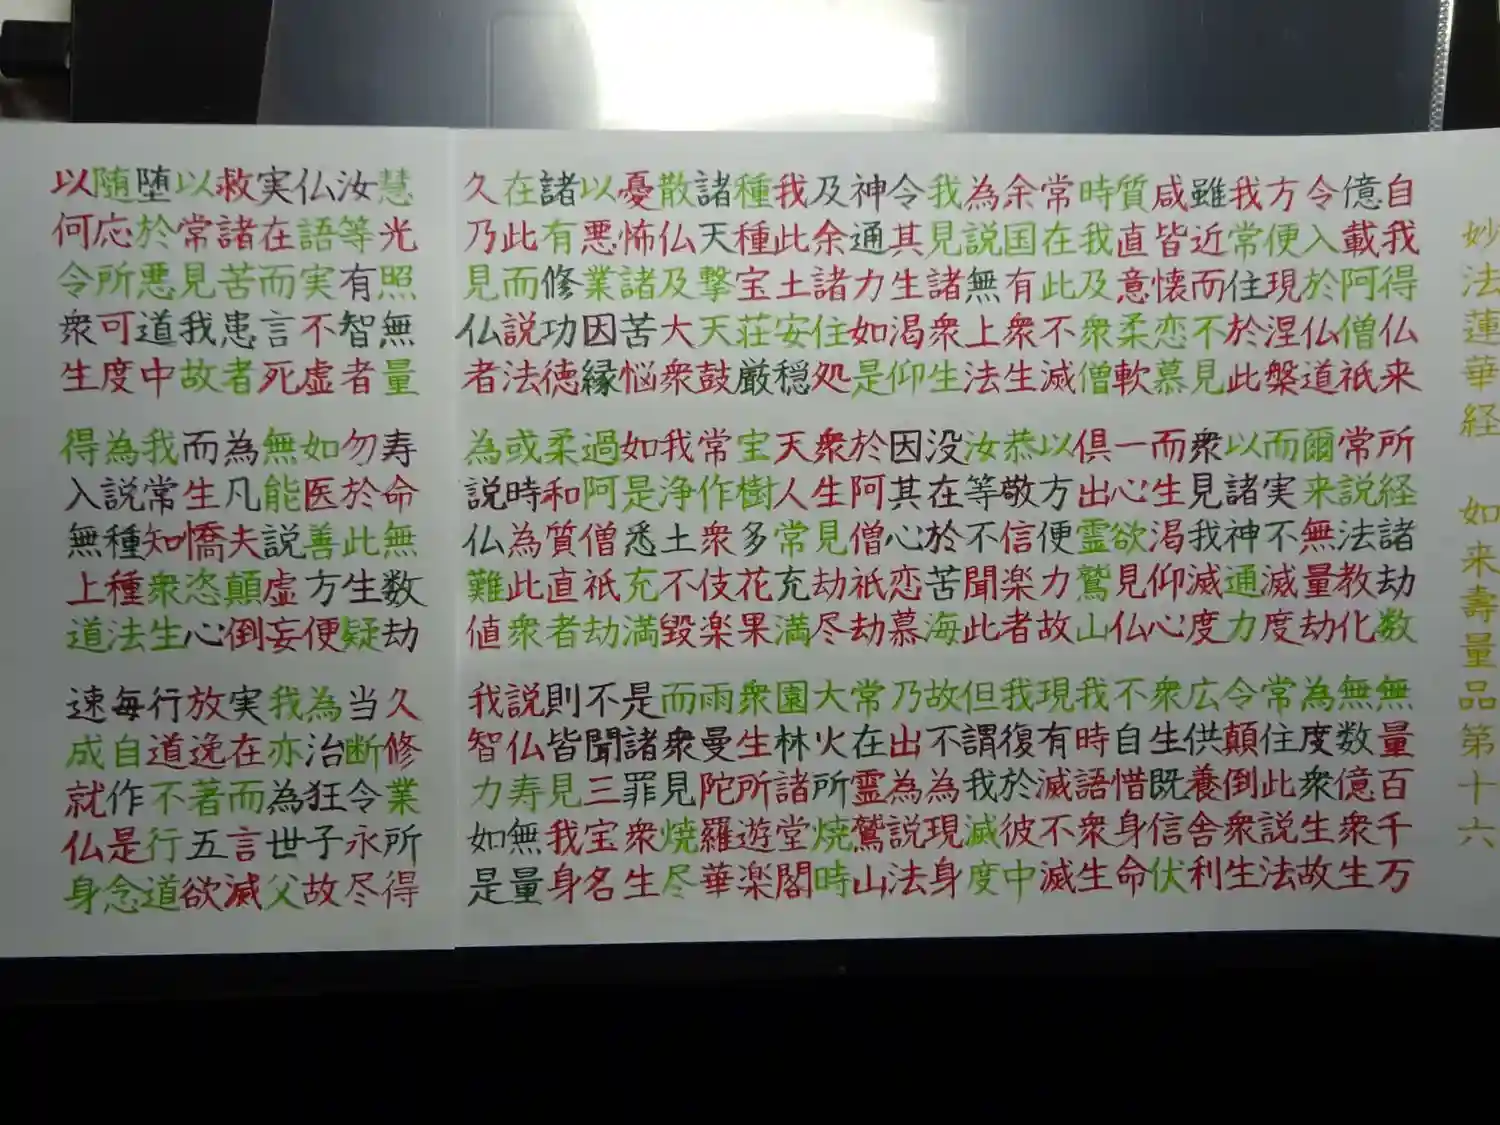 妙法蓮華経 如来壽量品第十六
自我得仏来 所経諸劫数 無量百千万
億載阿僧祇 常説法教化 無数億衆生
令入於仏道 爾来無量劫 為度衆生故
方便現涅槃 而実不滅度 常住此説法
我常住於此 以諸神通力 令顛倒衆生
雖近而不見 衆見我滅度 広供養舎利
咸皆懐恋慕 而生渇仰心 衆生既信伏
質直意柔軟 一心欲見仏 不自惜身命
時我及衆僧 倶出霊鷲山 我時語衆生
常在此不滅 以方便力故 現有滅不滅
余国有衆生 恭敬信楽者 我復於彼中
為説無上法 汝等不聞此 但謂我滅度
我見諸衆生 没在於苦海 故不為現身
令其生渇仰 因其心恋慕 乃出為説法
神通力如是 於阿僧祇劫 常在霊鷲山
及余諸住処 衆生見劫尽 大火所焼時
我此土安穏 天人常充満 園林諸堂閣
種種宝荘厳 宝樹多花果 衆生所遊楽
諸天撃天鼓 常作衆伎楽 雨曼陀羅華
散仏及大衆 我浄土不毀 而衆見焼尽
憂怖諸苦悩 如是悉充満 是諸罪衆生
以悪業因縁 過阿僧祇劫 不聞三宝名
諸有修功徳 柔和質直者 則皆見我身
在此而説法 或時為此衆 説仏寿無量
久乃見仏者 為説仏難値 我智力如是
慧光照無量 寿命無数劫 久修業所得
汝等有智者 勿於此生疑 当断令永尽
仏語実不虚 如医善方便 為治狂子故
実在而言死 無能説虚妄 我亦為世父
救諸苦患者 為凡夫顛倒 実在而言滅
以常見我故 而生憍恣心 放逸著五欲
堕於悪道中 我常知衆生 行道不行道
随応所可度 為説種種法 毎自作是念
以何令衆生 得入無上道 速成就仏身